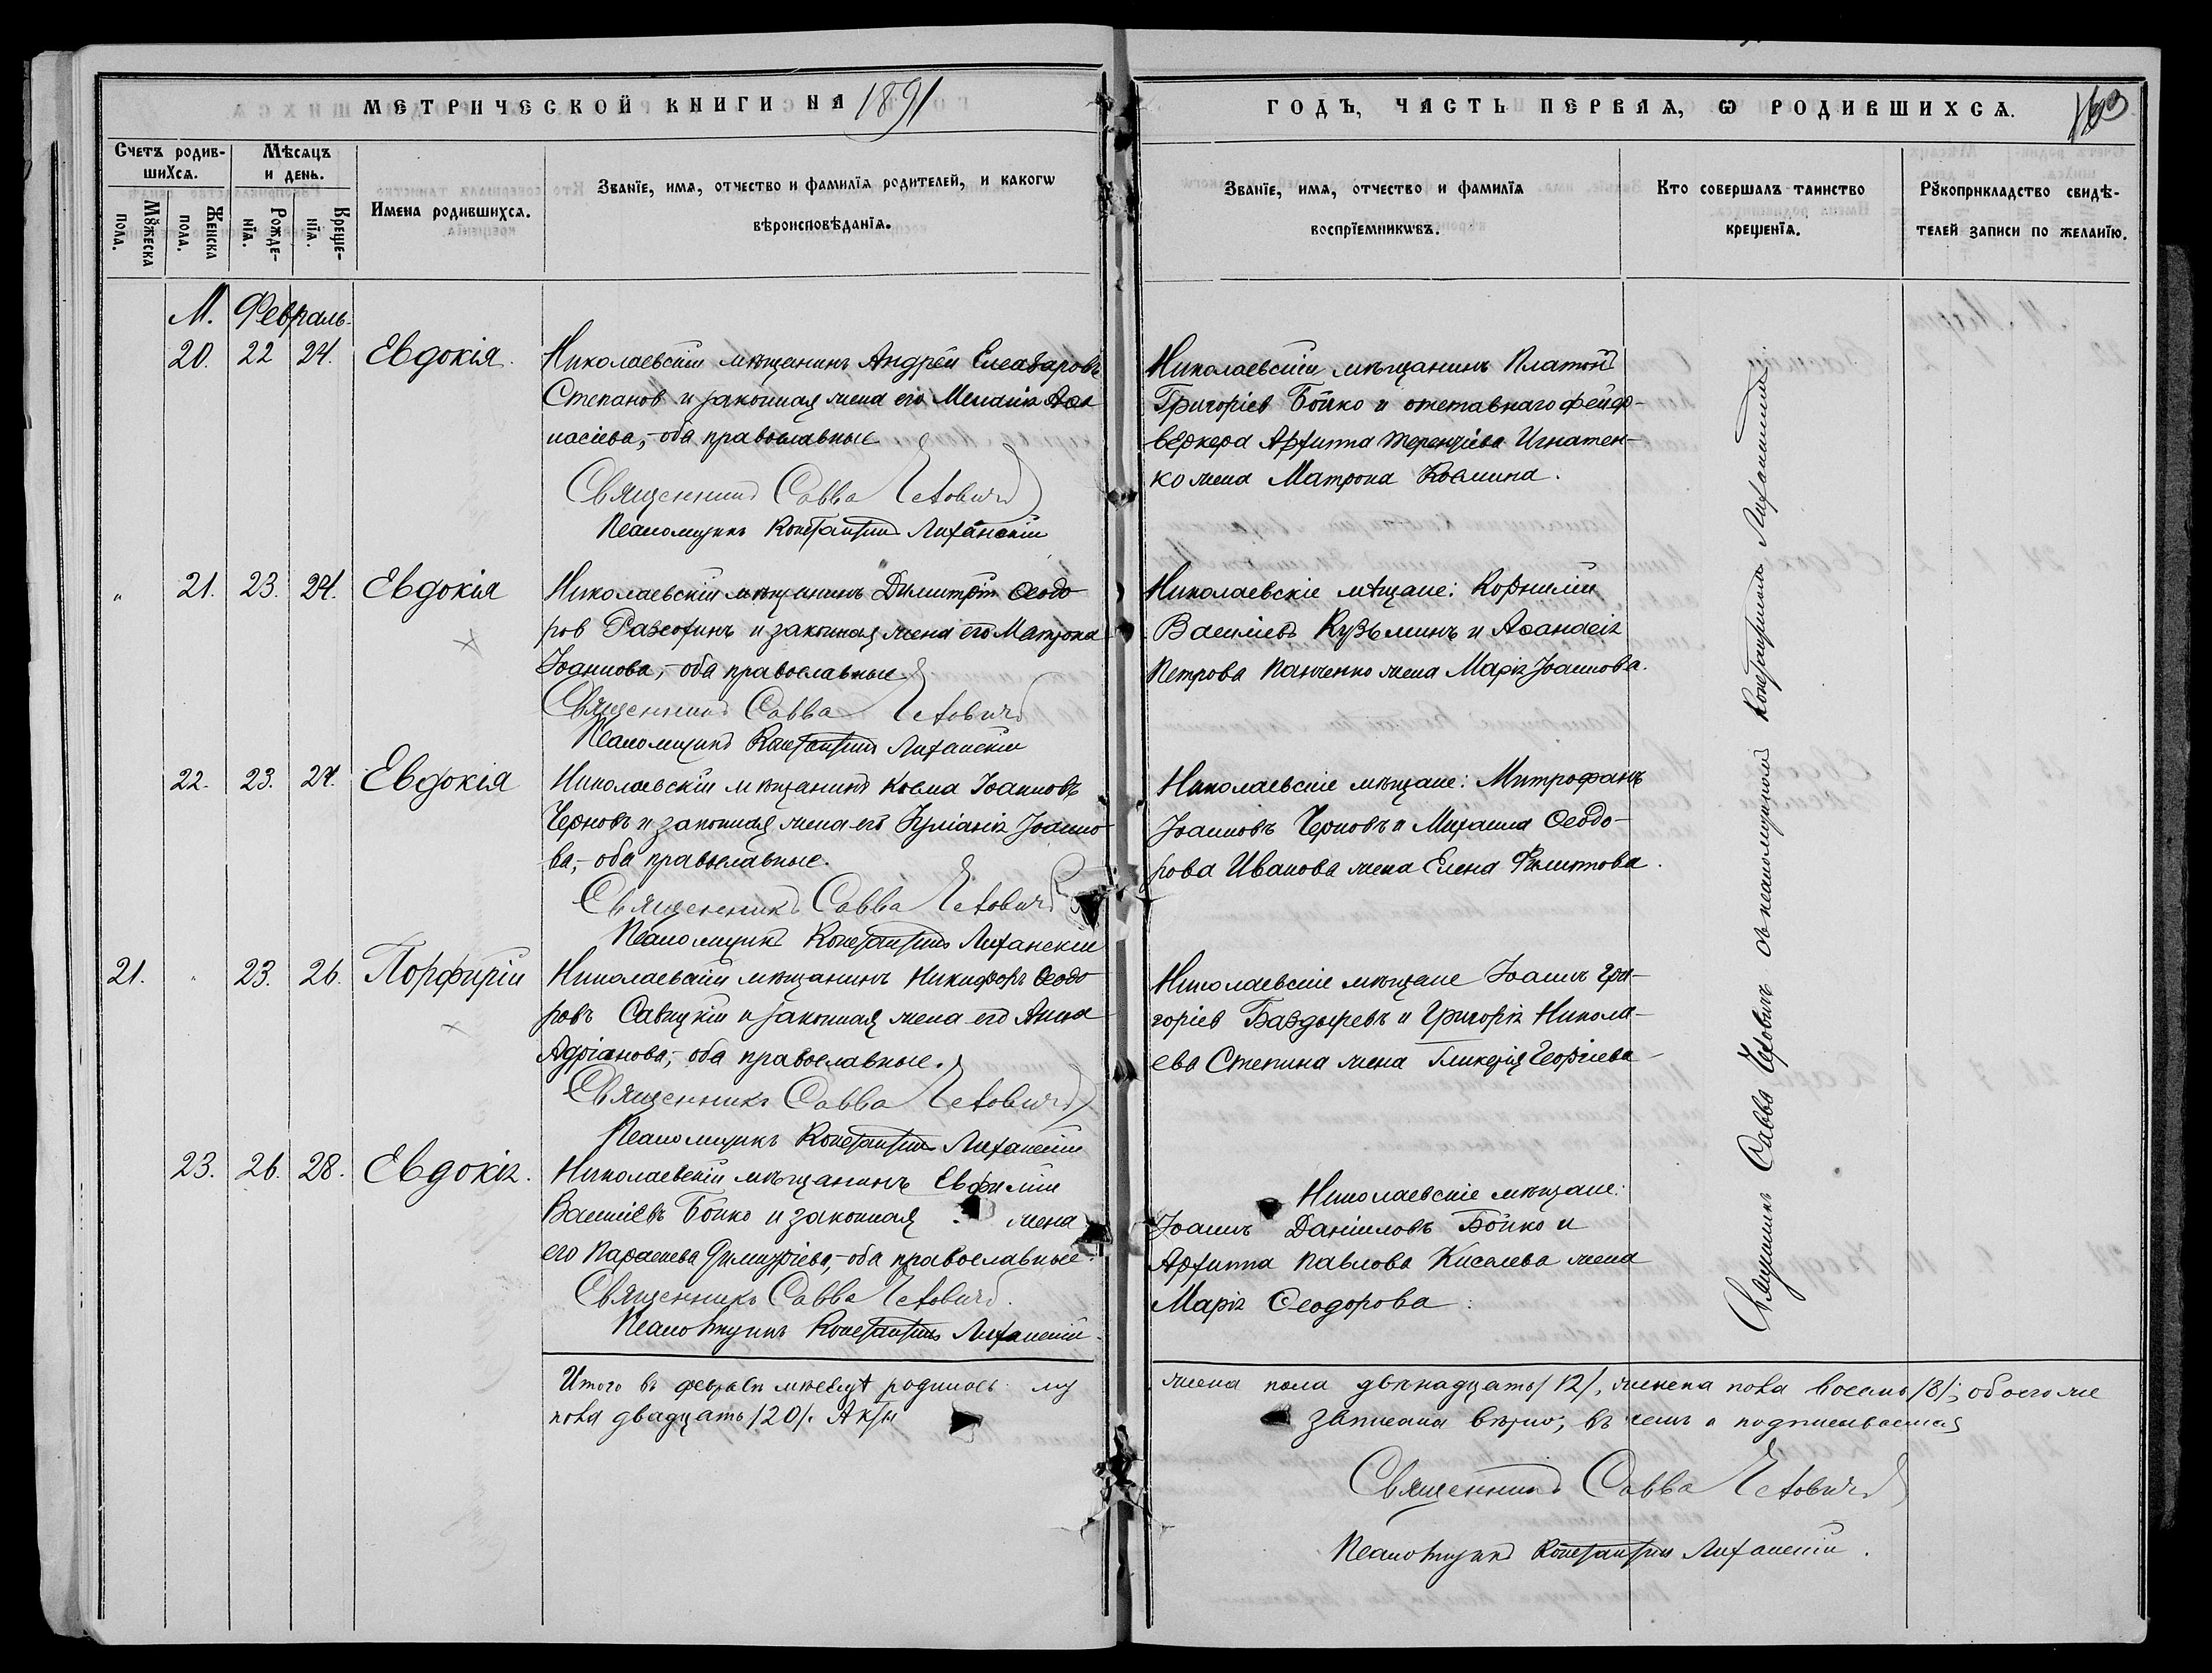 МЕТРИЧЕСКОЙ КНИГИ НА 1891
ГОДЪ, ЧАСТЬ ПЕРВАЯ, Ѡ РОДИВШИХСѦ.
163
Счетъ родив-
шихсѧ.
Мѣсѧцъ
и день.
Мꙋжеска
пола.
Женска
пола.
Рожде-
нїѧ.
Креще-
нїѧ.
Имена родившихсѧ.
Званїе, имѧ, отчество и фамилїѧ родителей, и какогѡ
вѣроисповѣданїѧ.
Званїе, имѧ, отчество и фамилїѧ
воспрїемникѡвъ.
Кто совершалъ таинство
крещенїѧ.
Рꙋкоприкладство свидѣ-
телей записи по желанїю.
М. Февраль
20. 22 24. Евдокія.
Николаевскій мѣщанинъ Андрей Елеазаровъ
Степанов и законная жена его Меланія Аѳа
насіева, - оба православные
Священникъ Савва Чехович
Псаломщикъ Константинъ Лиханскій
Николаевскій мѣщанинъ Платонъ
Григоріев Бойко и отставнаго фейер-
веркера Архиппа Терентіева Игнатен-
ко жена Матрона Космина.
„ 21. 23. 24. Евдокія
Николаевскій мѣщанинъ Димитрій Ѳеодо
ров Разсохинъ и законная жена его Матрона
Іоаннова, - оба православные.
Священникъ Савва Чеховичъ
Псаломщикъ Константинъ Лиханскій
Николаевскіе мѣщане: Корнилій
Василіевъ Кузьминъ и Аѳанасія
Петрова Панченко жена Марія Іоаннова.
22. 23. 24. Евдокія
Николаевскій мѣщанинъ Косма Іоанновъ
Черновъ и законная жена его Іуліанія Іоанно
ва, - оба православные.
Священникъ Савва Чеховичъ
Псаломщикъ Константинъ Лиханскій
Николаевскіе мѣщане: Митрофанъ
Іоанновъ Черновъ и Михаила Ѳеодо-
рова Иванова жена Елена Филиппова.
21. „ 23. 26. Порфирій
Николаевскій мѣщанинъ Никифоръ Ѳеодо
ровъ Савицкій и законная жена его Анна
Адріанова, - оба православные.
Священникъ Савва Чеховичъ
Псаломщикъ Константинъ Лиханскій
Николаевскіе мѣщане Іоаннъ Гри-
горіев Баздыревъ и Григорія Никола-
ева Степина жена Гликерія Георгіева
23. 26. 28. Евдокія.
Николаевскій мѣщанинъ Евфимій
Василіевъ Бойко и законная жена
его Параскева Димитріева, - оба православные.
Священникъ Савва Чеховичъ.
Псаломщикъ Константинъ Лиханскій.
Николаевскіе мѣщане:
Іоаннъ Даніиловъ Бойко и
Архиппа Павлова Киселева жена
Марія Ѳеодорова.
Священникъ Савва Чеховичъ съ псаломщикомъ Константиномъ Лиханскимъ
Итого въ февралѣ мѣсяцѣ родилось му
жеска пола двѣнадцать /12/, женска пола восемь /8/; обоего же
пола двадцать /20/. Акты
записаны вѣрно; въ чемъ и подписываемся
Священникъ Савва Чеховичъ
Псаломщикъ Константинъ Лиханскій.